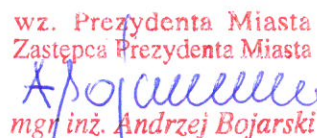 wz. Prezydenta Miasta
Zastępca Prezydenta Miasta
ABojarski
mgr inż. Andrzej Bojarski